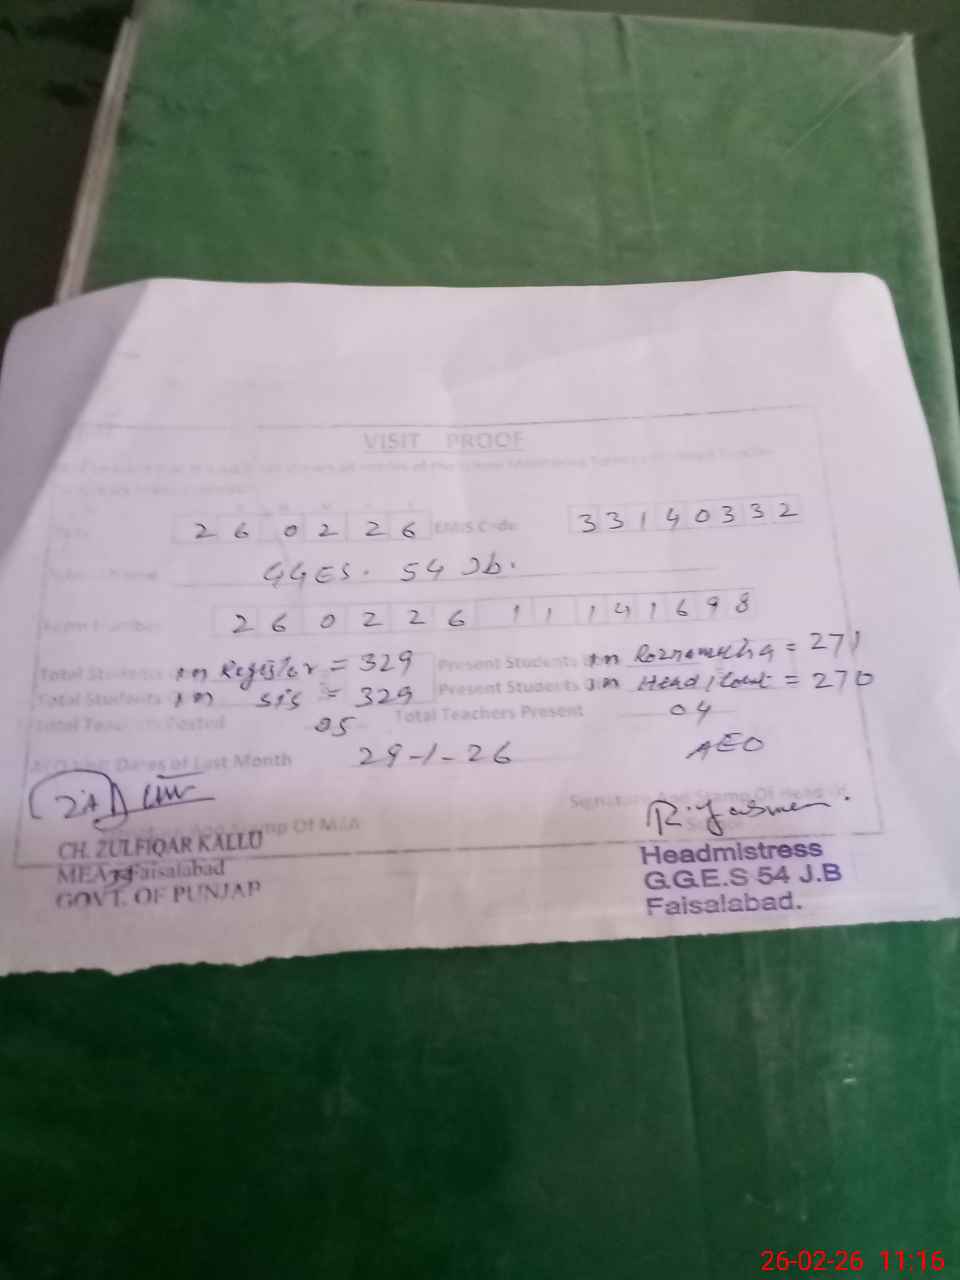 VISIT PROOF
260226 EMIS Code 33140332
GGES. 54 Jb.
260226 11 141698
Total Students in Register = 329 Present Students in Roznamcha = 271
Total Students in SIS = 329 Present Students in Head Count = 270
Total Teachers Posted 05 Total Teachers Present 04
Visit Dates of Last Month 29-1-26 AEO
Signature And Stamp Of Head of
R. Yasmeen.
Stamp Of MEA
CH. ZULFIQAR KALLU
MEA Faisalabad
GOVT. OF PUNJAB
Headmistress
G.G.E.S 54 J.B
Faisalabad.
26-02-26 11:16